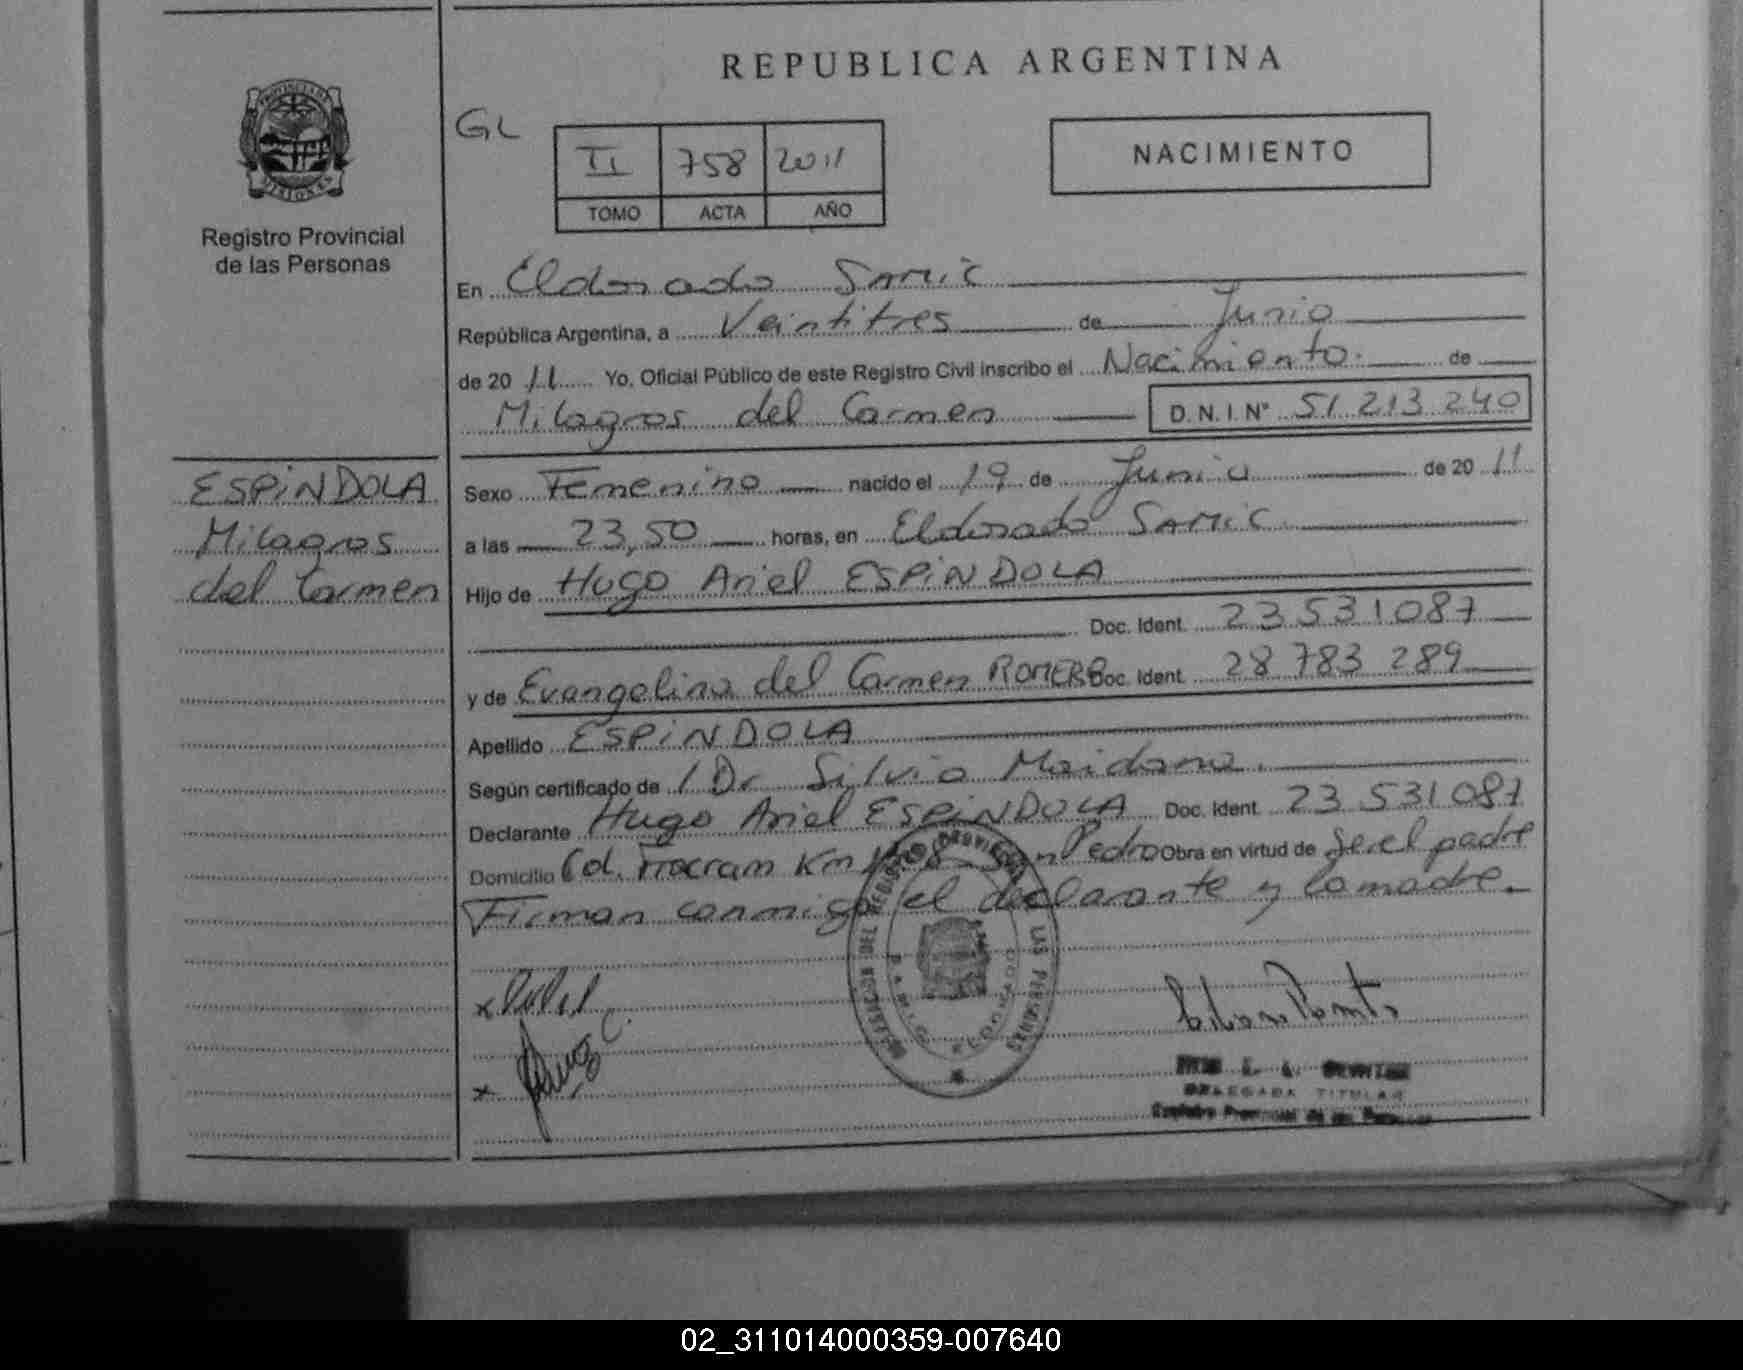 REPUBLICA ARGENTINA
PROVINCIA DE
MISIONES
Registro Provincial
de las Personas
GL
II 758 2011
TOMO ACTA AÑO
NACIMIENTO
En Eldorado SAMIC
República Argentina, a Veintitres de Junio
de 2011 Yo, Oficial Público de este Registro Civil inscribo el Nacimiento de
Milagros del Carmen D.N.I.Nº 51 213 240
ESPINDOLA
Milagros
del Carmen
Sexo Femenino nacido el 19 de Junio de 2011
a las 23,50 horas, en Eldorado SAMIC
Hijo de Hugo Ariel ESPINDOLA
Doc. Ident. 23 531 087
y de Evangelina del Carmen ROMERO Doc. Ident. 28 783 289
Apellido ESPINDOLA
Según certificado de / Dr Silvio Maidana.
Declarante Hugo Ariel ESPINDOLA Doc. Ident. 23 531 087
Domicilio Col. Km Pedro Obra en virtud de Ser el padre
Firman conmigo el declarante y la madre.
LAS PERSONAS
ELDORADO
x
x
DELEGADA TITULAR
02_311014000359-007640